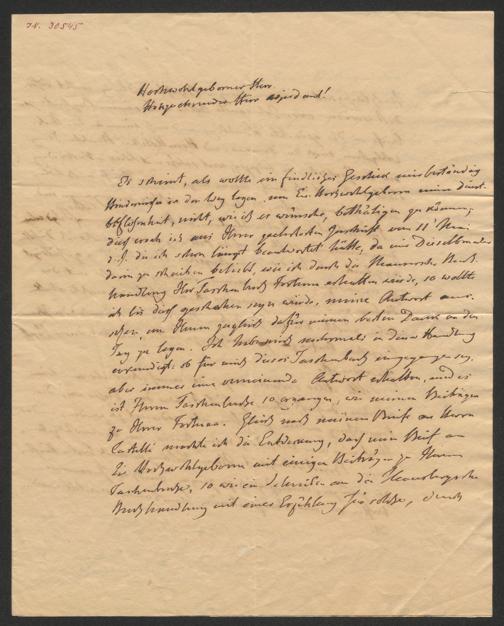 I.N. 30545
Hochwohlgeborner Herr
Hochgeehrtester Herr
Es scheint, als wollte ein feindliches Geschick mir beständig
Hindernisse in den Weg legen, um Ew. Hochwohlgeborn meine Dienst-
beflissenheit, nicht, wie ich es wünsche, bethätigen zu können;
dieß ersah ich aus Ihrer geehrten Zuschrift vom 11
d. J. die ich schon längst beantwortet hätte, da mir Dieselben
darin zu schreiben beliebt, wie ich durch die Buch-
handlung Ihr Taschenbuch Fortuna erhalten würde, so wollte
ich bis dieß geschehen seyn würde, meine Antwort
um Ihnen zugleich dafür meinen besten Dank an den
Tag zu legen. Ich habe mich mehrmals in dieser Handlung
erkundigt: ob für mich dieses Taschenbuch eingegangen sey,
aber immer eine verneinende Antwort erhalten, und es
ist Ihrem Taschenbuche so ergangen, wie meinen Beiträgen
zu Ihrer Fortuna. Gleich nach meinem Brief an Herrn
Castelli machte ich die Entdeckung, daß mein Brief an
Ew Hochwohlgeborn mit einigen Beiträgen zu Ihrem
Taschenbuche, so wie ein Schreiben an die
Buchhandlung mit einer Erzählung für solche, durch